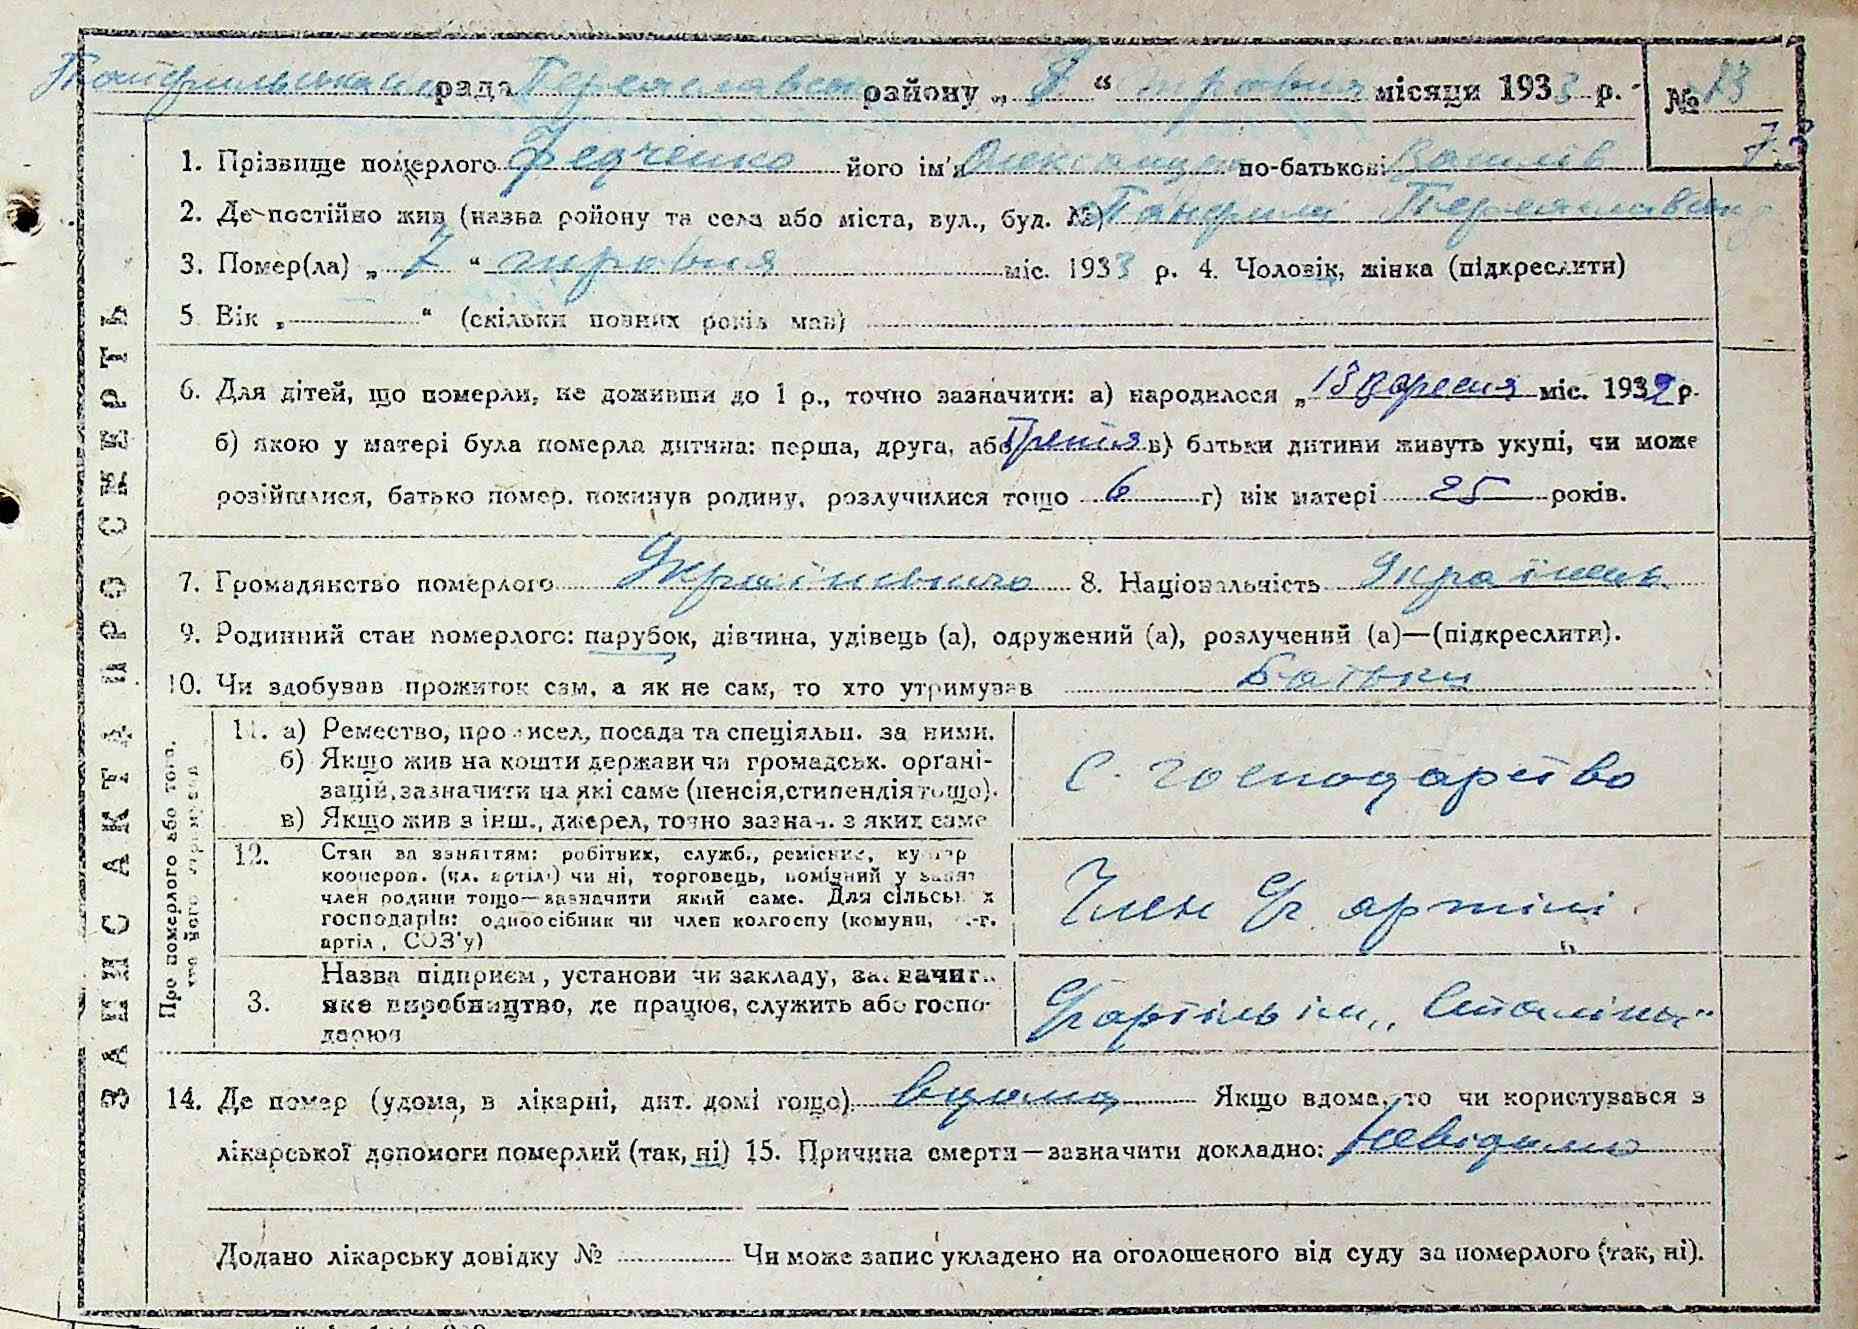 рада Переяславськ району „ 8 “ травня місяця 1933 р. № 73
73
1. Прізвище померлого Федченко його ім'я Олександр по-батькові Василів
2. Де постійно жив (назва району та села або міста, вул., буд. №) Панфили Переяславськ
3. Помер(ла) „ 7 “ травня міс. 1933 р. 4. Чоловік, жінка (підкреслити)
5 Вік „ “ (скільки повних років мав)
6. Для дітей, що померли, не доживши до 1 р., точно зазначити: а) народилося „ 13 вересня міс. 1932 р.
б) якою у матері була померла дитина: перша, друга, або Третя в) батьки дитини живуть укупі, чи може
розійшлися, батько помер. покинув родину, розлучилися тощо г) вік матері 25 років.
7. Громадянство померлого 8. Національність Українець
9. Родинний стан померлого: парубок, дівчина, удівець (а), одружений (а), розлучений (а)—(підкреслити).
10. Чи здобував прожиток сам, а як не сам, то хто утримував Батьки
ЗАПИС АКТА ПРО СМЕРТЬ
Про померлого або того, хто його утримував
11. а) Ремество, промисел, посада та спеціяльн. за ними.
б) Якщо жив на кошти держави чи громадськ. органі-
зацій, зазначити на які саме (пенсія, стипендія тощо).
в) Якщо жив з інш., джерел, точно зазнач. з яких саме
С. господарство
12. Стан за заняттям: робітник, служб., ремісник, кустар
кооперов. (чл. артілі) чи ні, торговець, помічний у занят
член родини тощо—зазначити який саме. Для сільськ х
господарів: одноосібник чи член колгоспу (комуни, с.-г.
артіл , СОЗ'у)
Член артілі
3. Назва підприєм , установи чи закладу, зазначит..
яке виробництво, де працює, служить або госпо-
дарює
артіль ім „ Сталіна “
14. Де помер (удома, в лікарні, дит. домі тощо) вдома Якщо вдома, то чи користувався з
лікарської допомоги померлий (так, ні) 15. Причина смерти—зазначити докладно: Невідомо
Додано лікарську довідку № Чи може запис укладено на оголошеного від суду за померлого (так, ні).